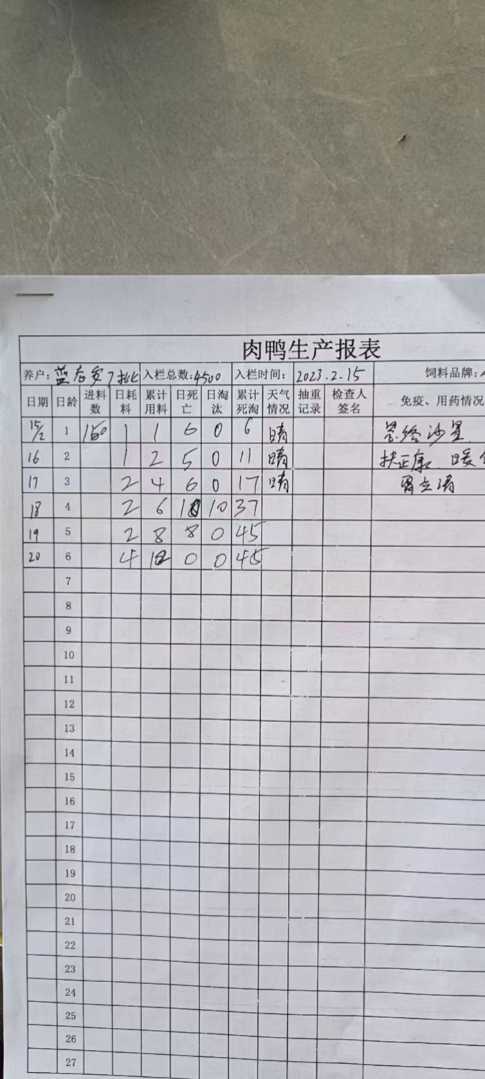 肉鸭生产报表
养户: 蓝 入栏总数:4500 入栏时间: 2023.2.15 饲料品牌:
日期 日龄 进料数 日耗料 累计用料 日死亡 日淘汰 累计死淘 天气情况 抽重记录 检查人签名 免疫、用药情况
15/2 1 150 1 1 6 0 6 晴 恩给沙星
16 2 1 2 5 0 11 晴 扶正康
17 3 2 4 6 0 17 晴
18 4 2 6 10 10 37
19 5 2 8 8 0 45
20 6 4 12 0 0 45
7
8
9
10
11
12
13
14
15
16
17
18
19
20
21
22
23
24
25
26
27